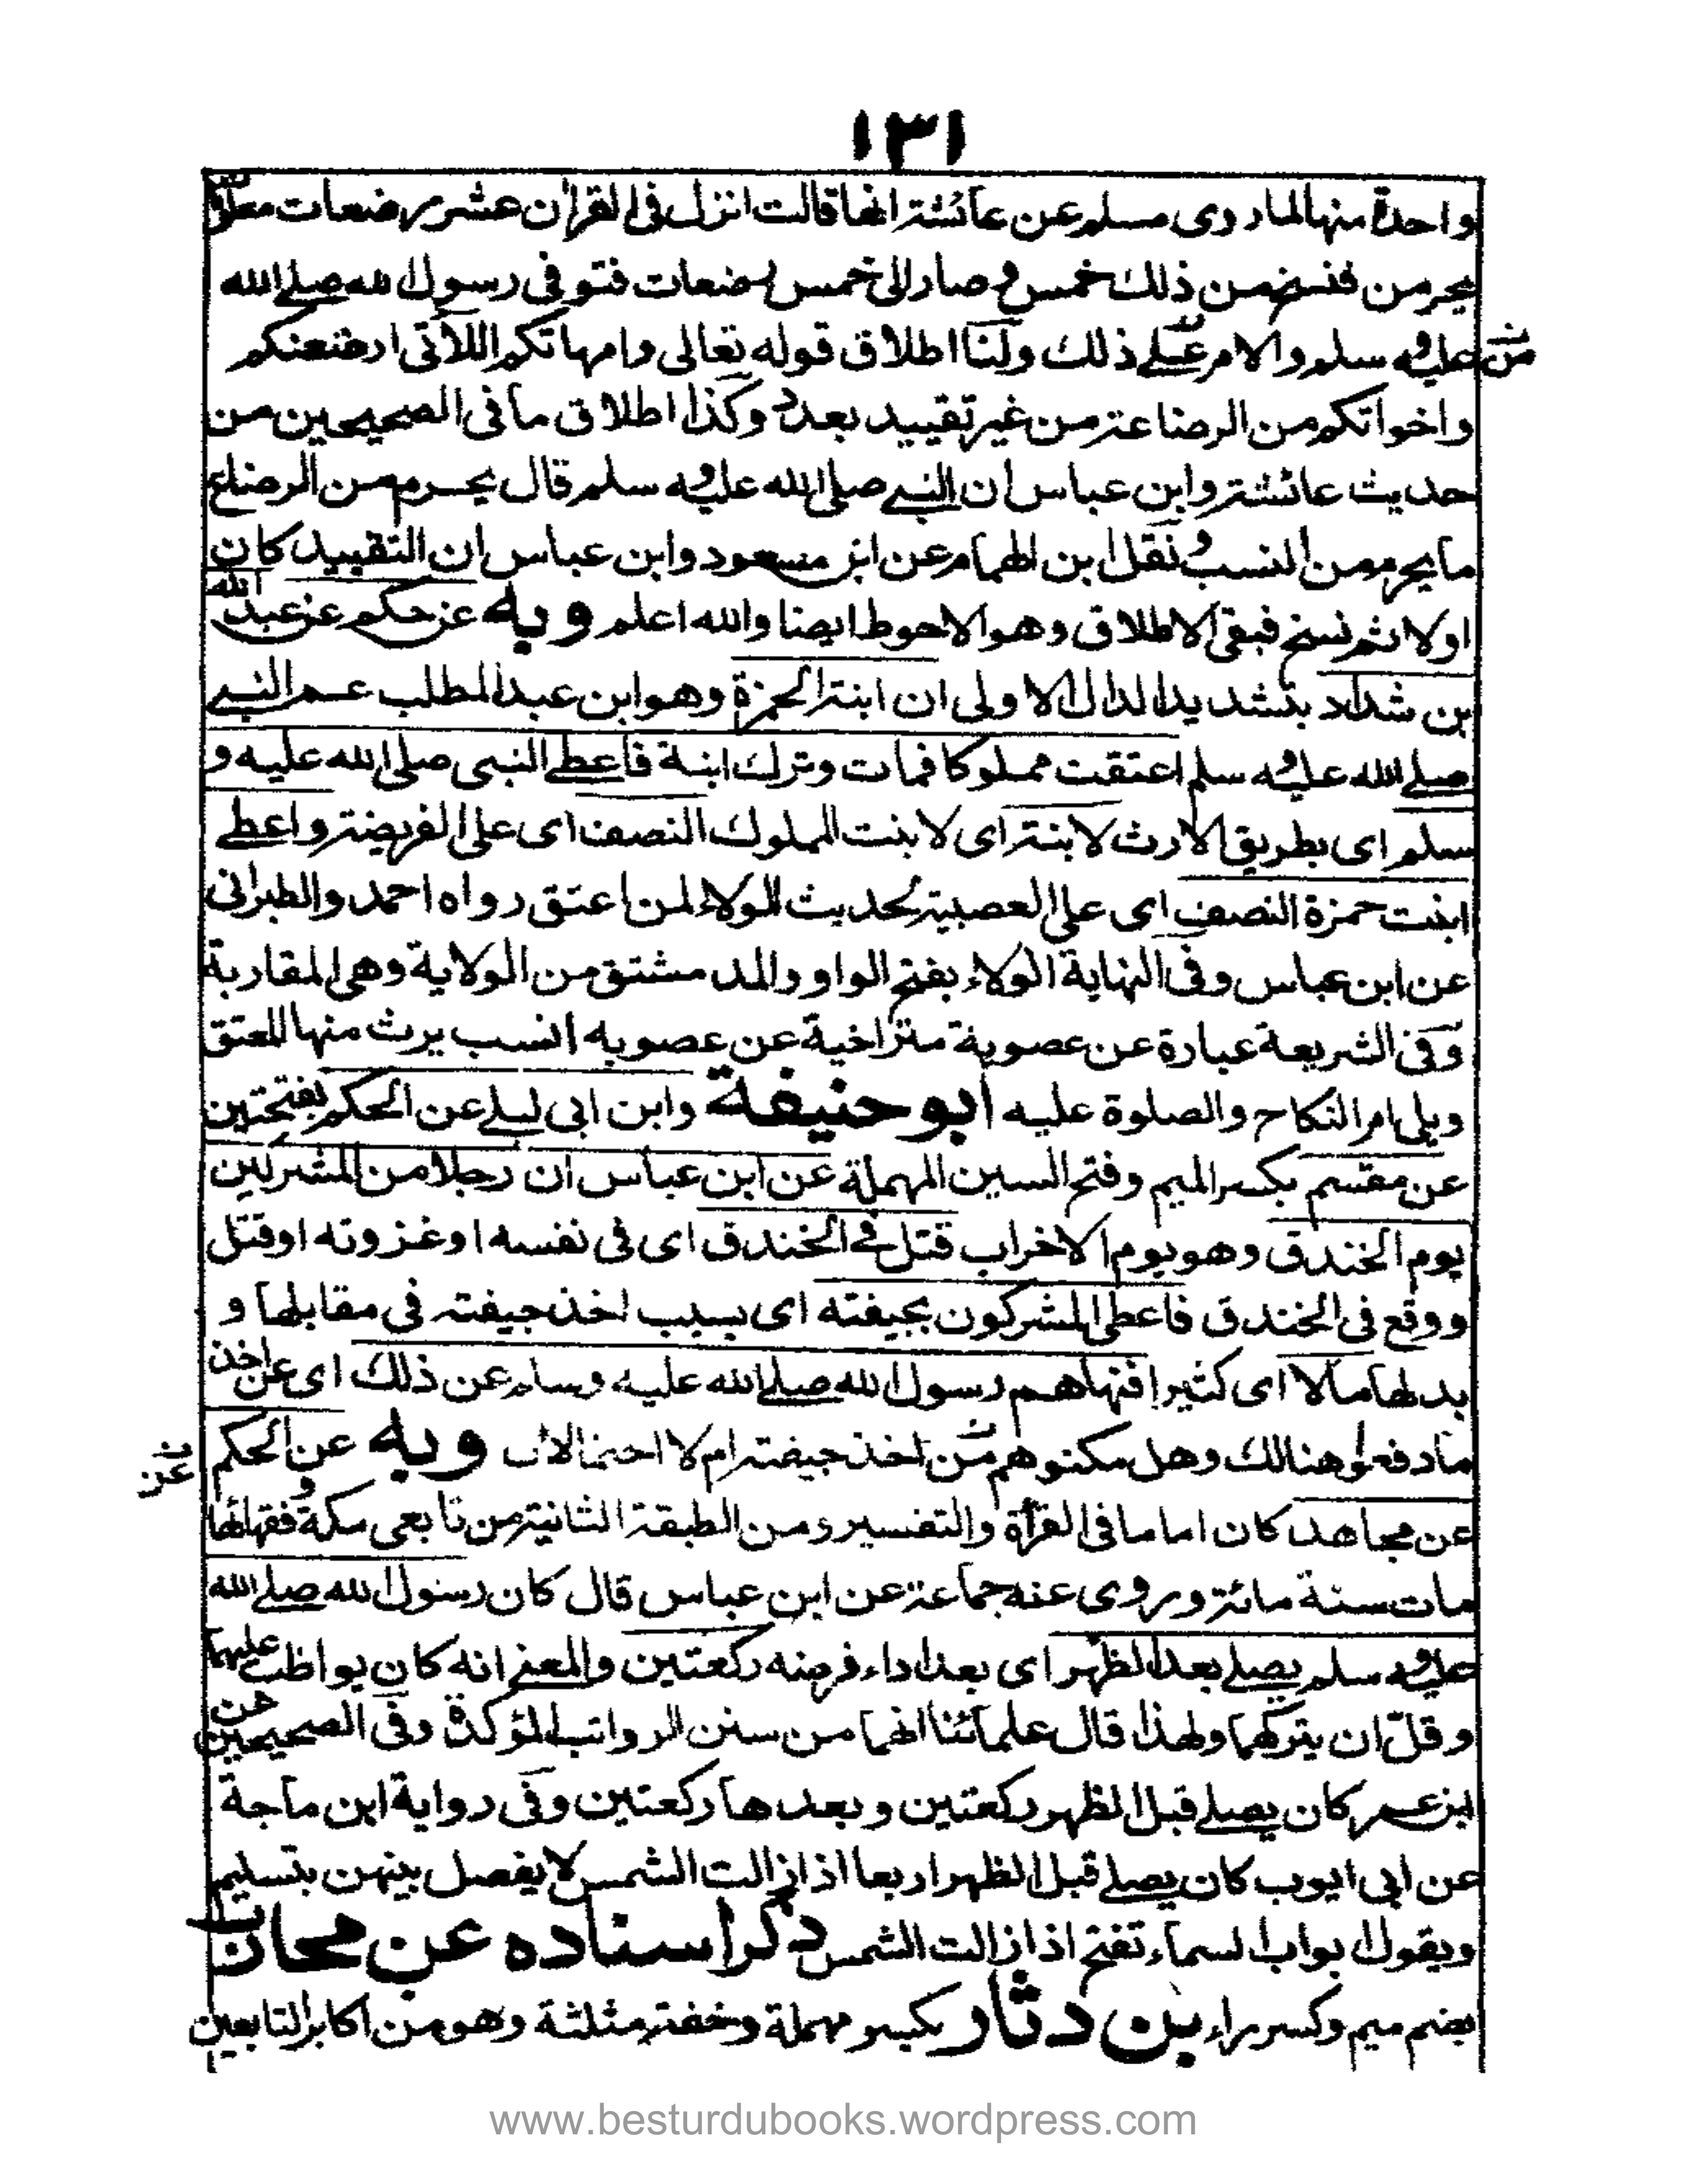 ١٣١
واحدة منها لما روى مسلم عن عائشة انها قالت انزل فى القرآن عشر رضعات معلوم
يحرمن فنسخ من ذلك خمس و صار الى خمس رضعات فتوفى رسول الله صلى الله
عليه و سلم والامر على ذلك ولنا اطلاق قوله تعالى وامهاتكم اللاتى ارضعنكم
واخواتكم من الرضاعة من غير تقييد بعدد وكذا اطلاق ما فى الصحيحين من
حديث عائشة وابن عباس ان النبى صلى الله عليه و سلم قال يحرم من الرضاع
ما يحرم من النسب و نقل ابن الهمام عن ابن مسعود وابن عباس ان التقييد كان
اولا ثم نسخ فبقى الاطلاق وهو الاحوط ايضا والله اعلم وبه عن حكم عن عبد الله
بن شداد بتشديد الدال الاولى ان ابنة الحمزة وهو ابن عبد المطلب عم النبى
صلى الله عليه و سلم اعتقت مملوكا فمات وترك ابنة فاعطى النبى صلى الله عليه و
سلم اى بطريق الارث لابنة اى لابنت المملوك النصف اى على الفريضة واعطى
ابنت حمزة النصف اى على العصبية لحديث الولاء لمن اعتق رواه احمد والطبرانى
عن ابن عباس وفى النهاية الولاء بفتح الواو والمد مشتق من الولاية وهى المقاربة
وفى الشريعة عبارة عن عصوبة متراخية عن عصوبه انسب يرث منها المعتق
ويلى امر النكاح والصلوة عليه ابو حنيفة وابن ابى ليلى عن الحكم بفتحتين
عن مقسم بكسر الميم وفتح السين المهملة عن ابن عباس ان رجلا من المشركين
يوم الخندق وهو يوم الاخراب قتل فى الخندق اى فى نفسه او غزوته او قتل
ووقع فى الخندق فاعطى المشركون بجيفته اى بسبب اخذ جيفته فى مقابلها و
بدلها مالا اى كثيرا فنهاهم رسول الله صلى الله عليه وسلم عن ذلك اى عن اخذ
ما دفعوا هنالك وهل مكنوهم من اخذ جيفته ام لا احتمالان وبه عن الحكم
عن مجاهد كان اماما فى القرأة والتفسير ومن الطبقة الثانية من تابعى مكة و فقهائها
مات سنة مائة وروى عنه جماعة عن ابن عباس قال كان رسول الله صلى الله
عليه و سلم يصلى بعد الظهر اى بعد اداء فرضه ركعتين والمعنى انه كان يواظب عليهما
وقل ان يتركهما ولهذا قال علمائنا انهما من سنن الرواتب المؤكدة وفى الصحيحين عن
ابن عمر كان يصلى قبل الظهر ركعتين وبعدها ركعتين وفى رواية ابن ماجة
عن ابى ايوب كان يصلى قبل الظهر اربعا اذا زالت الشمس لا يفصل بينهن بتسليم
ويقول ابواب السماء تفتح اذا زالت الشمس ذكر اسناده عن محارب
بضم ميم وكسر راء بن دثار بكسر مهملة وخفة مثلثة وهو من اكابر التابعين
www.besturdubooks.wordpress.com